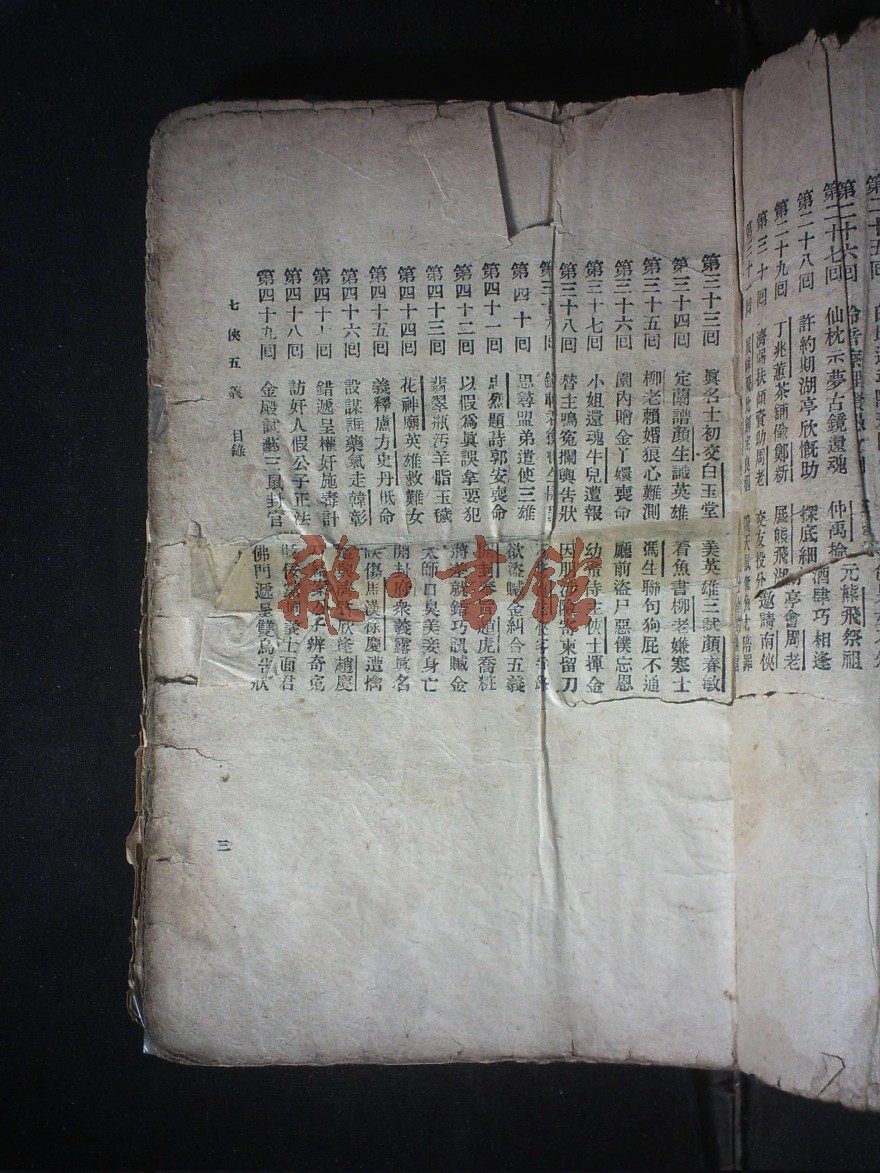 第二十七回 仙枕示夢古鏡還魂 仲禹掄元熊飛祭祖
第二十八回 許約期湖亭欣慨助 探底細酒肆巧相逢
第二十九回 丁兆蕙茶舖偷鄭新 展熊飛湖亭會周老
第三十回 濟弱扶傾資助周老 交友投分邀請南俠
第三十一回
第三十三回 眞名士初交白玉堂 美英雄三試顏春敏
第三十四回 定蘭譜顏生識英雄 看魚書柳老嫌寒士
第三十五回 柳老賴婚狼心難測 馮生聯句狗屁不通
第三十六回 園內贈金丫嬛喪命 廳前盜尸惡僕忘恩
第三十七回 小姐還魂牛兒遭報 幼童侍主俠士揮金
第三十八回 替主鳴寃攔輿吿狀 因朋涉險寄柬留刀
第三十九回
第四十回 思尋盟弟遣使三雄 欲盜贓金糾合五義
第四十一回 忠烈題詩郭安喪命 開封奏事趙虎喬粧
第四十二回 以假爲眞誤拿要犯 將差就錯巧訊贓金
第四十三回 翡翠瓶汚羊脂玉穢 太師口臭美妾身亡
第四十四回 花神廟英雄救難女 開封府衆義露眞名
第四十五回 義釋盧方史丹抵命 誤傷馬漢徐慶遭擒
第四十六回 設謀誆藥氣走韓彰 遣興濟貧欣逢趙慶
第四十七回 錯遞呈權奸施毒計 公子辨奇寃
第四十八回 訪奸人假公子正法 義士面君
第四十九回 金殿試藝三鼠封官 佛門遞呈雙烏吿狀
七俠五義 目錄
三
雜·書館